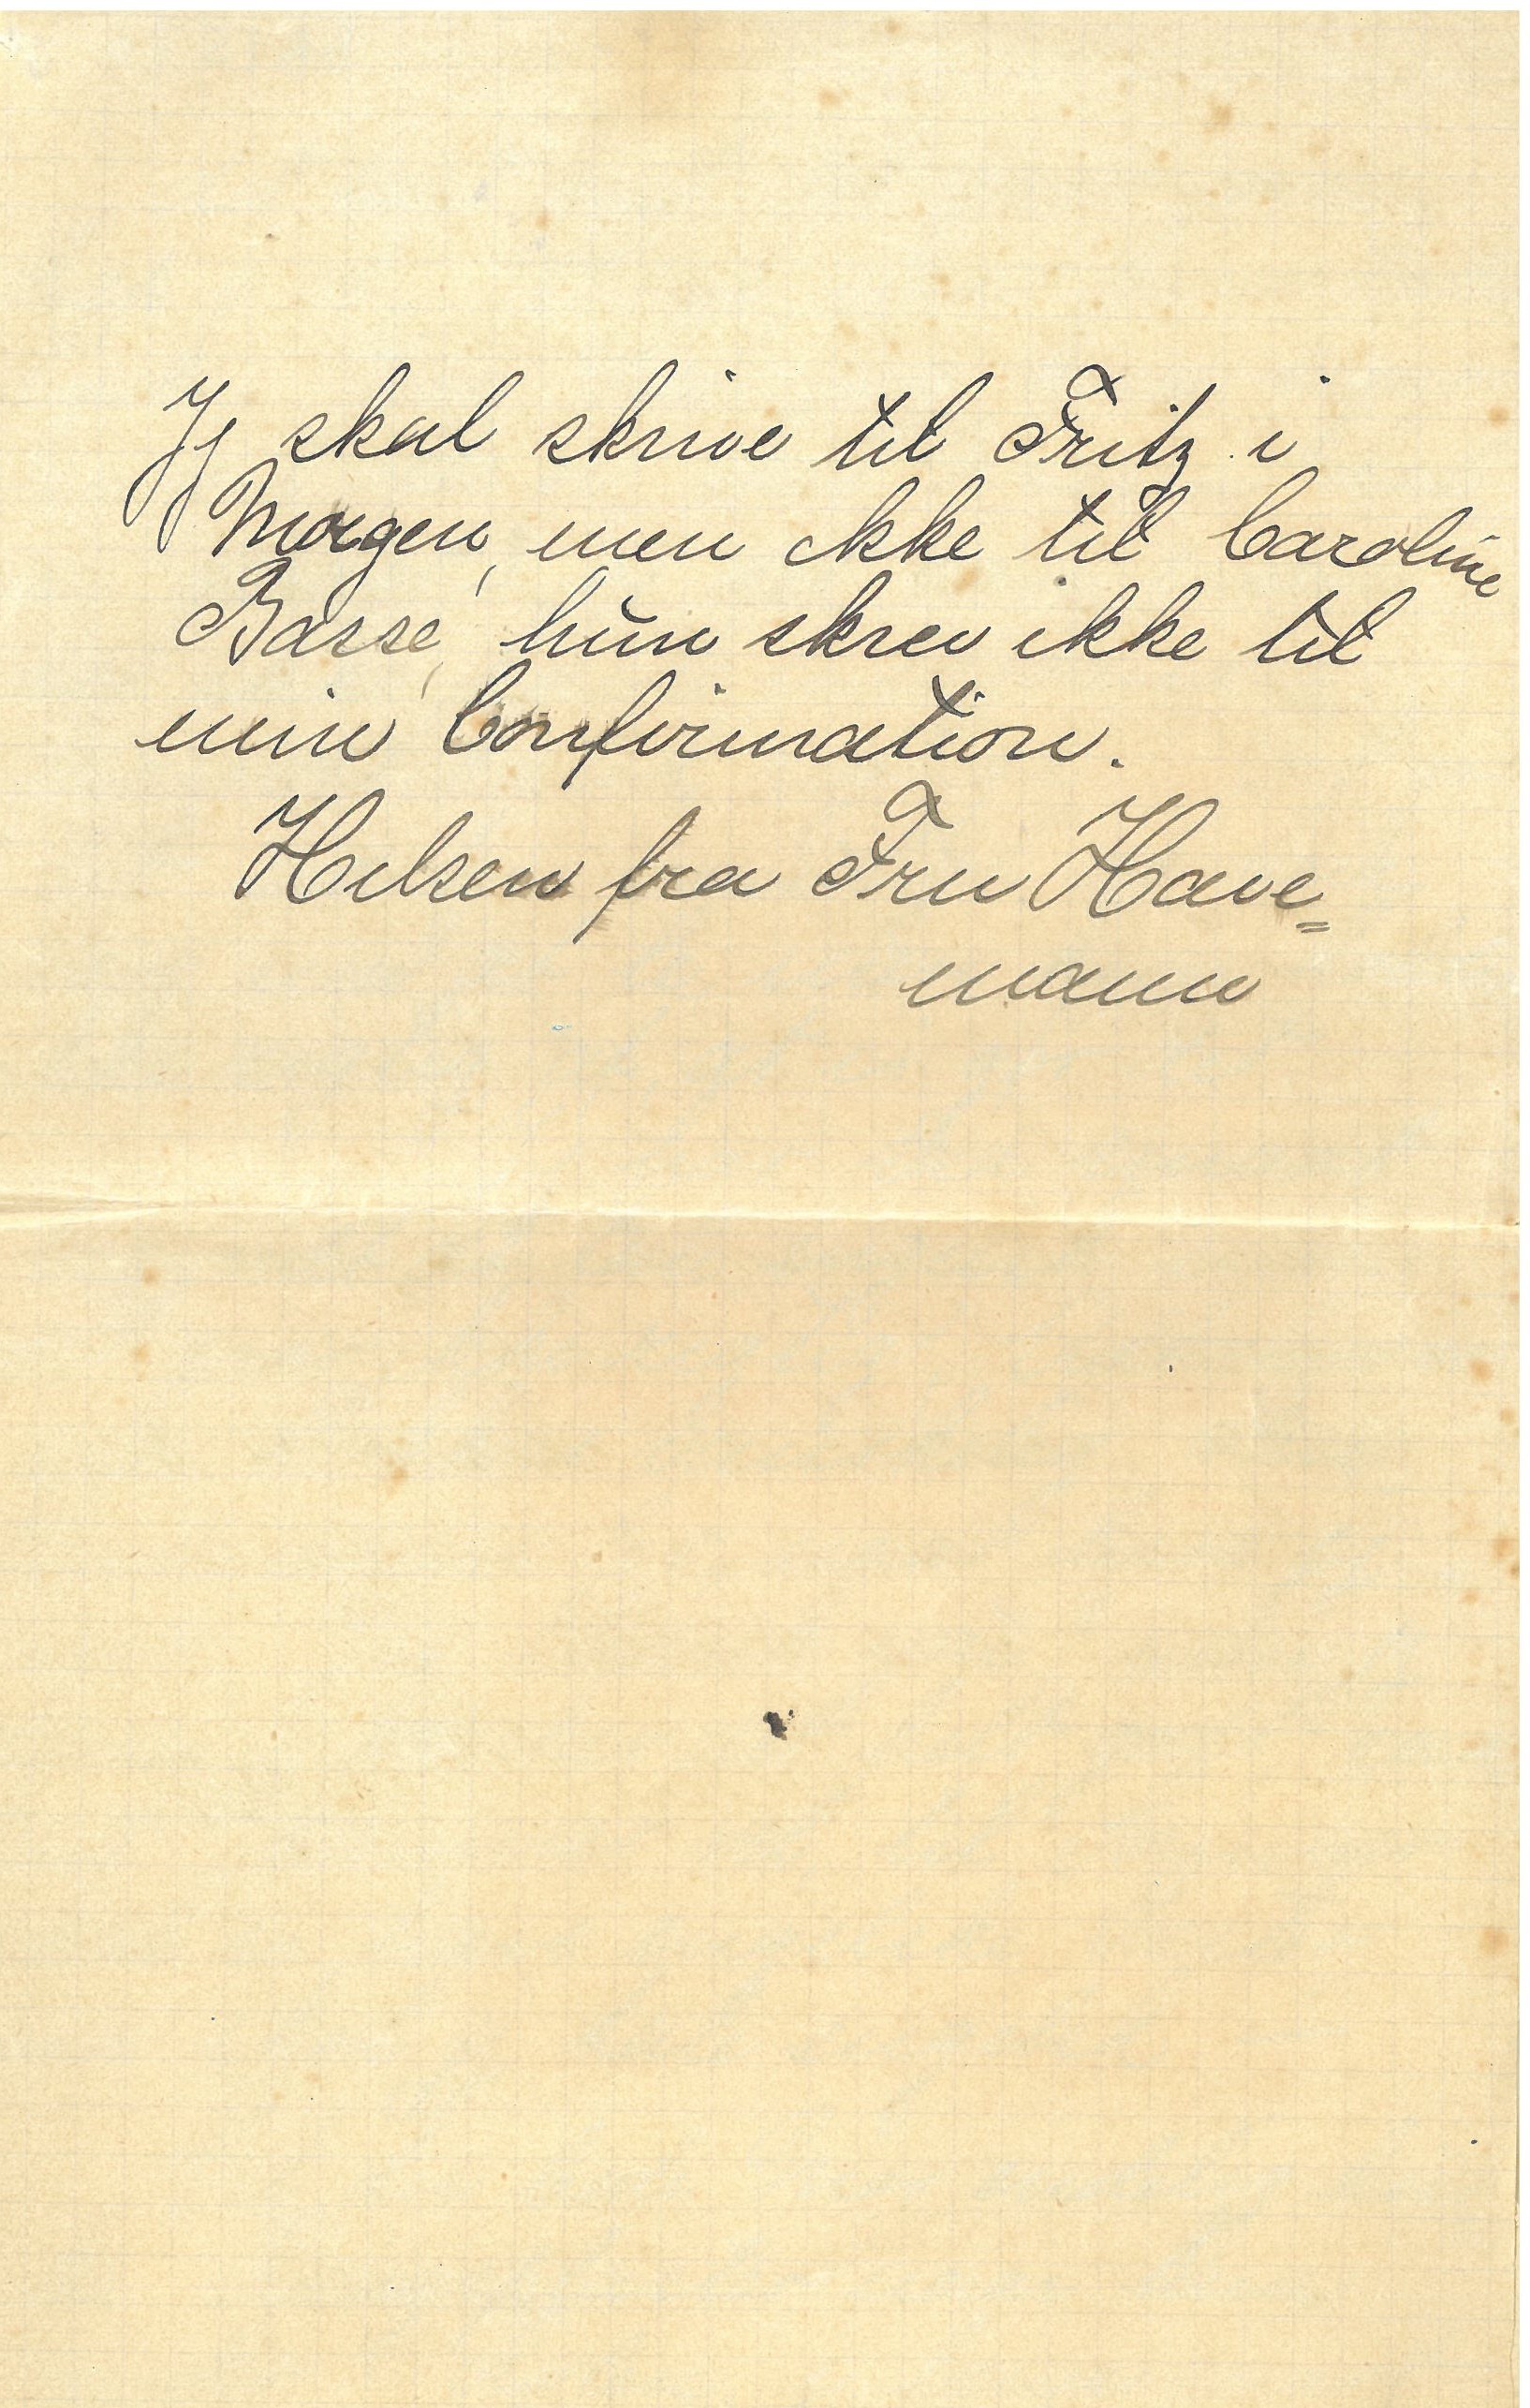 Jj skal skrive til Fritz i
Morgen, men ikke til Caroline
Basse, hun skrev ikke til
min Confirmation.
Hilsen fra Fru Have=
mann